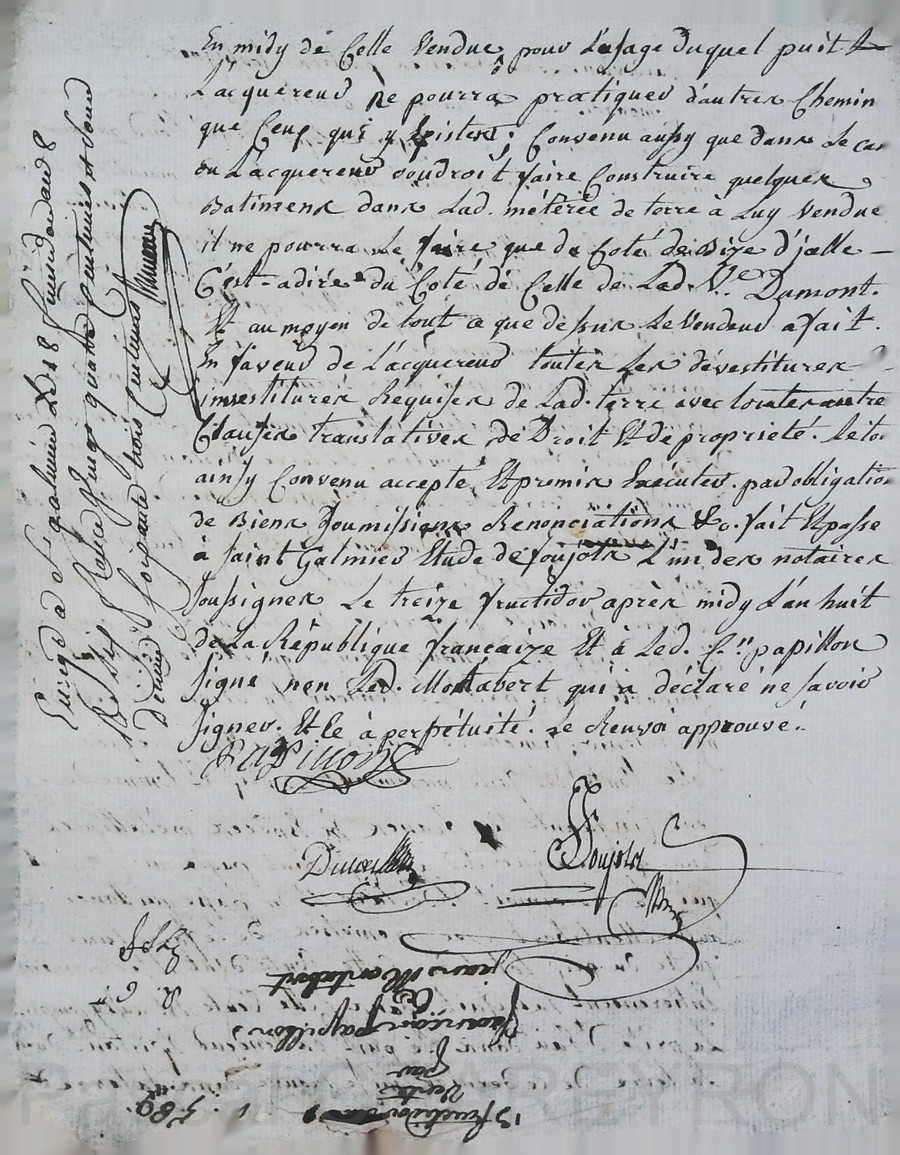 En midy de Celle Vendue pour L'usage duquel puit
L'acquereur ne pourra pratiquer d'autres Chemin
que Ceux qui y Existent; Convenu aussy que dans Le cas
ou L'acquereur voudroit faire Construire quelques
Batimens dans Lad. métérée de terre a Luy Vendue
il ne pourra Le faire que du Coté de Bize d'jcelle
C'est-adire du Coté de Celle de Lad. Ve. Dumont.
Et au moyen de tout ce que dessus Le Vendeur a fait
En faveur de L'acquereur toutes Les dévestitures
investitures Requises de Lad. terre avec toutes autre
Clauses translatives de Droit Et de proprieté. Le tout
ainsy Convenu accepté Et promis Executer par obligation
de Biens Soumissions Renonciations &c. fait Et passé
à Saint Galmier Etude de Soujols L'un des notaires
Soussignes Le treize fructidor après midy L'an huit
de La République françaize Et à Led. Cn. papillon
signé non Led. Montabert qui a déclaré ne savoir
signer. Et le à perpétuité. Le Renvoi approuvé.
Papillon
Soujols
Enrgé a St galmier Le 18 fructidor an 8
Reçu vingt quatre Centimes
Soixante trois Centimes
13 fructidor an 8
Vente
par
françois papillon
à
jean Montabert
589